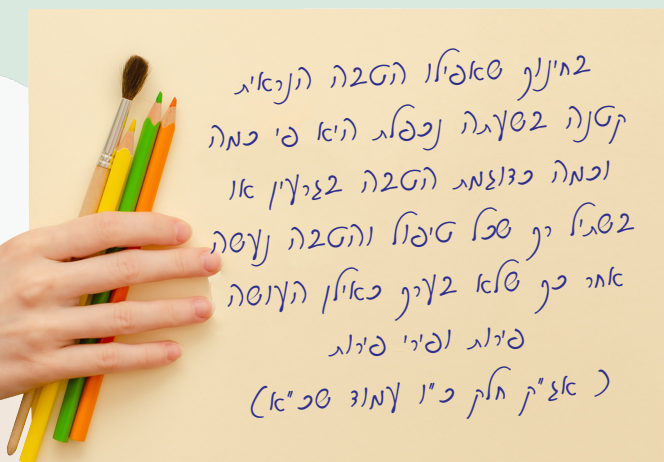 בחינוך שאפילו הטבה הנראית
קטנה בשעתה נכפלת היא פי כמה
וכמה כדוגמת הטבה בגרעין או
בשתיל רך שכל טיפול והטבה נעשה
אחר כך שלא בערך כאילן העושה
פירות ופירי פירות
( אג"ק חלק כ"ו עמוד שכ"א)